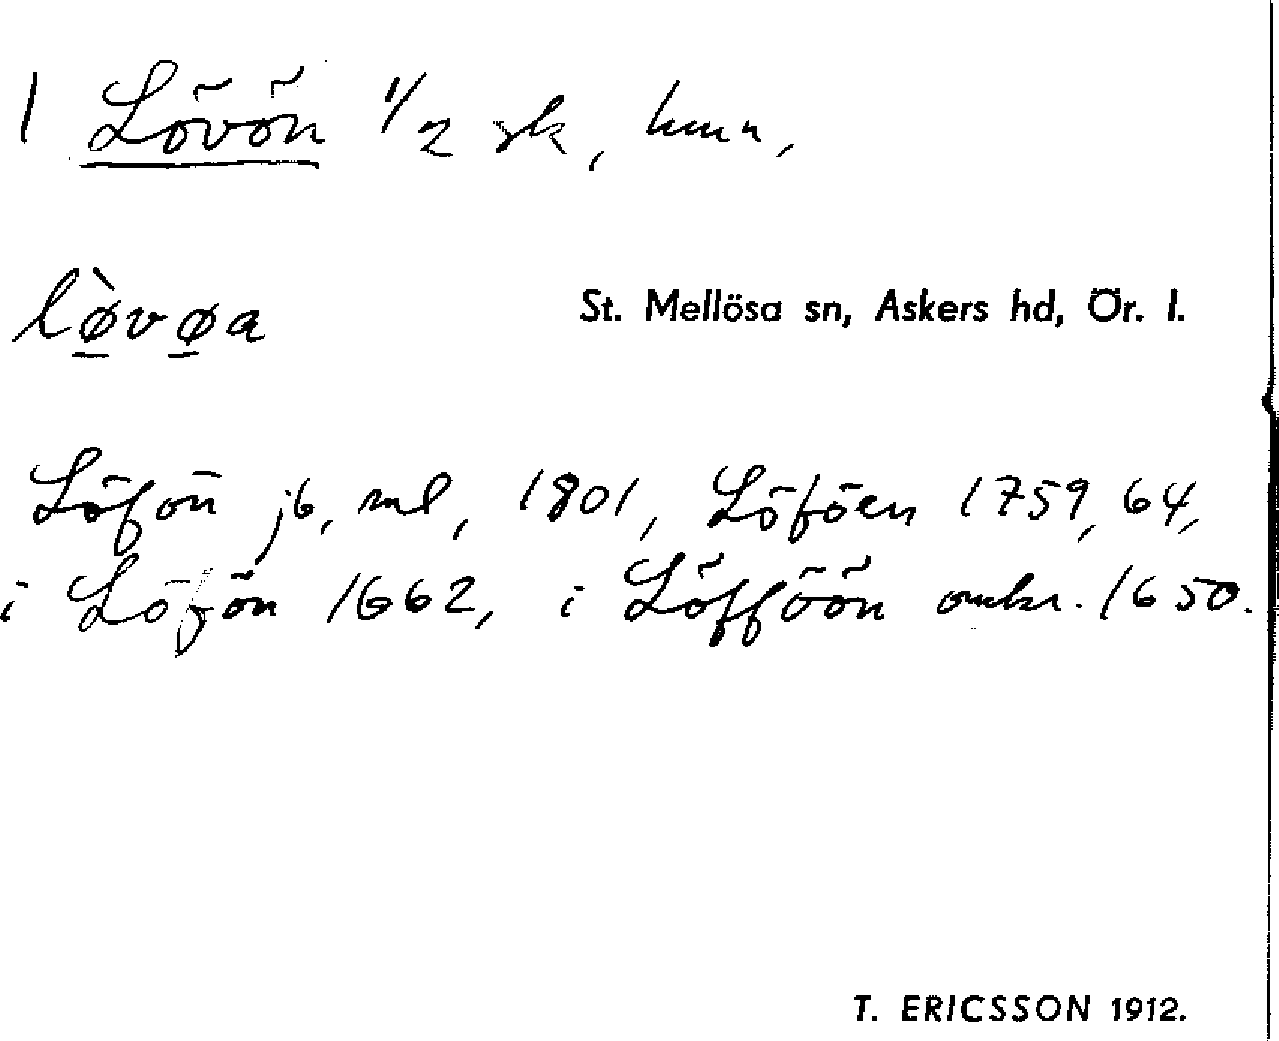 1 Lövön 1/2 sk, hmn,
lø̀vøa
St. Mellösa sn, Askers hd, Ör. l.
Löfön jb, ml, 1801, Löföen 1759, 64,
i Löfön 1662, i Löfföön omkr. 1650.
T. ERICSSON 1912.